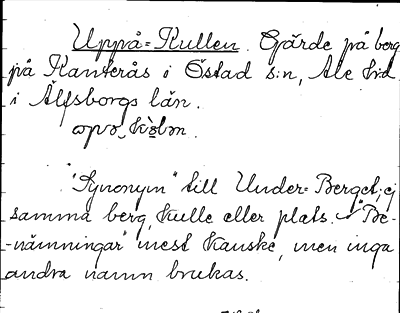 Uppå-Kullen. Gärde på berg
på Kanterås i Östad s:n, Ale hd
i Älfsborgs län.
"Synonym" till Under-Berget; ej
samma berg, kulle eller plats. "Be-
-nämningar" mest kanske, men inga
andra namn brukas.